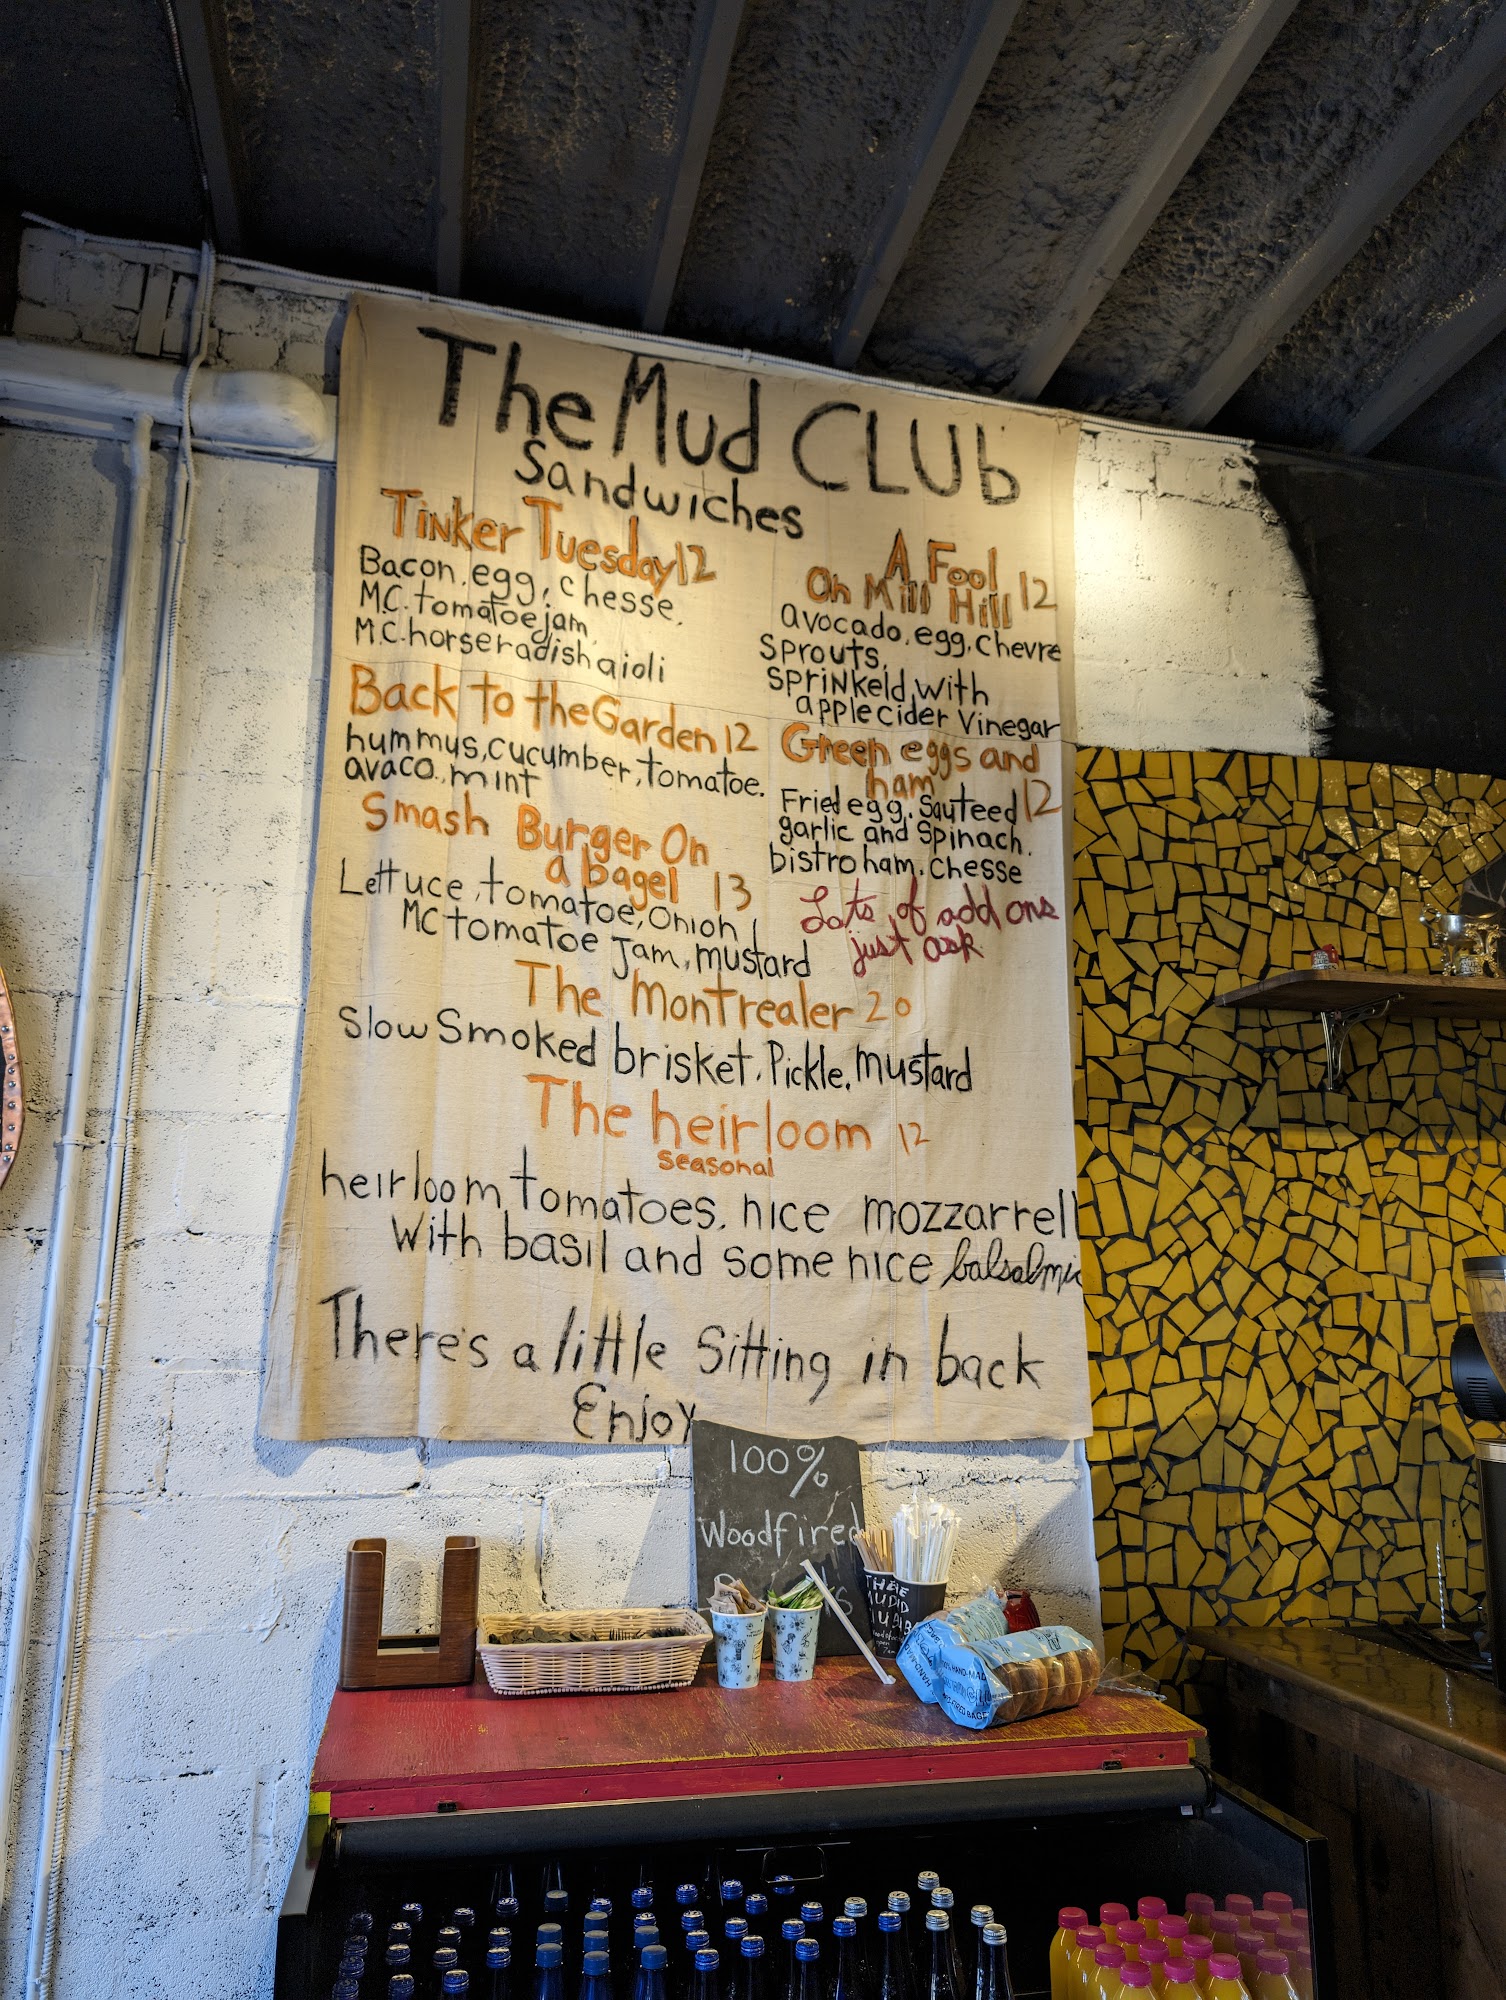 The Mud CLUb
Sandwiches
Tinker Tuesday 12
Bacon, egg, chesse,
M.C. tomatoe jam,
M.C. horseradish aioli
Back to the Garden 12
hummus, cucumber, tomatoe.
avaco., mint
Smash Burger On
a bagel 13
Lettuce, tomatoe, onion
MC tomatoe Jam, mustard
A Fool
On Mill Hill 12
avocado, egg, chevre
Sprouts,
Sprinkeld, with
apple cider Vinegar
Green eggs and
ham 12
Fried egg, Sauteed
garlic and Spinach,
bistro ham, chesse
Lots of add ons
just ask
The Montrealer 20
Slow Smoked brisket, Pickle, mustard
The heirloom 12
Seasonal
heirloom tomatoes, nice mozzarrell
With basil and some nice balsalmic
There's a little Sitting in back
Enjoy
100%
Woodfired
THE
MUD
CLUB